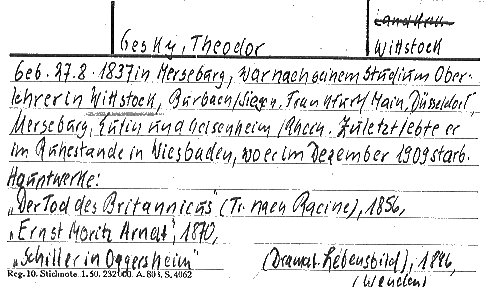 Landkrs.
Gesky, Theodor Wittstock
Geb. 27.8.1837 in Merseburg, war nach seinem Studium Ober-
lehrer in Wittstock, Burbach/Siegen, Frankfurt/Main, Düsseldorf,
Merseburg, Eutin und Meisenheim/Rhein. Zuletzt lebte er
im Ruhestande in Wiesbaden, wo er im Dezember 1909 starb.
Hauptwerke:
„Der Tod des Britannicus" (Tr. nach Racine), 1856,
„Ernst Moritz Arndt", 1870,
„Schiller in Oggersheim" (Dramat. Lebensbild), 1896,
Reg. 10. Stichnote. 1. 50. 232000. A. 803. S. 4062
(Wenden)